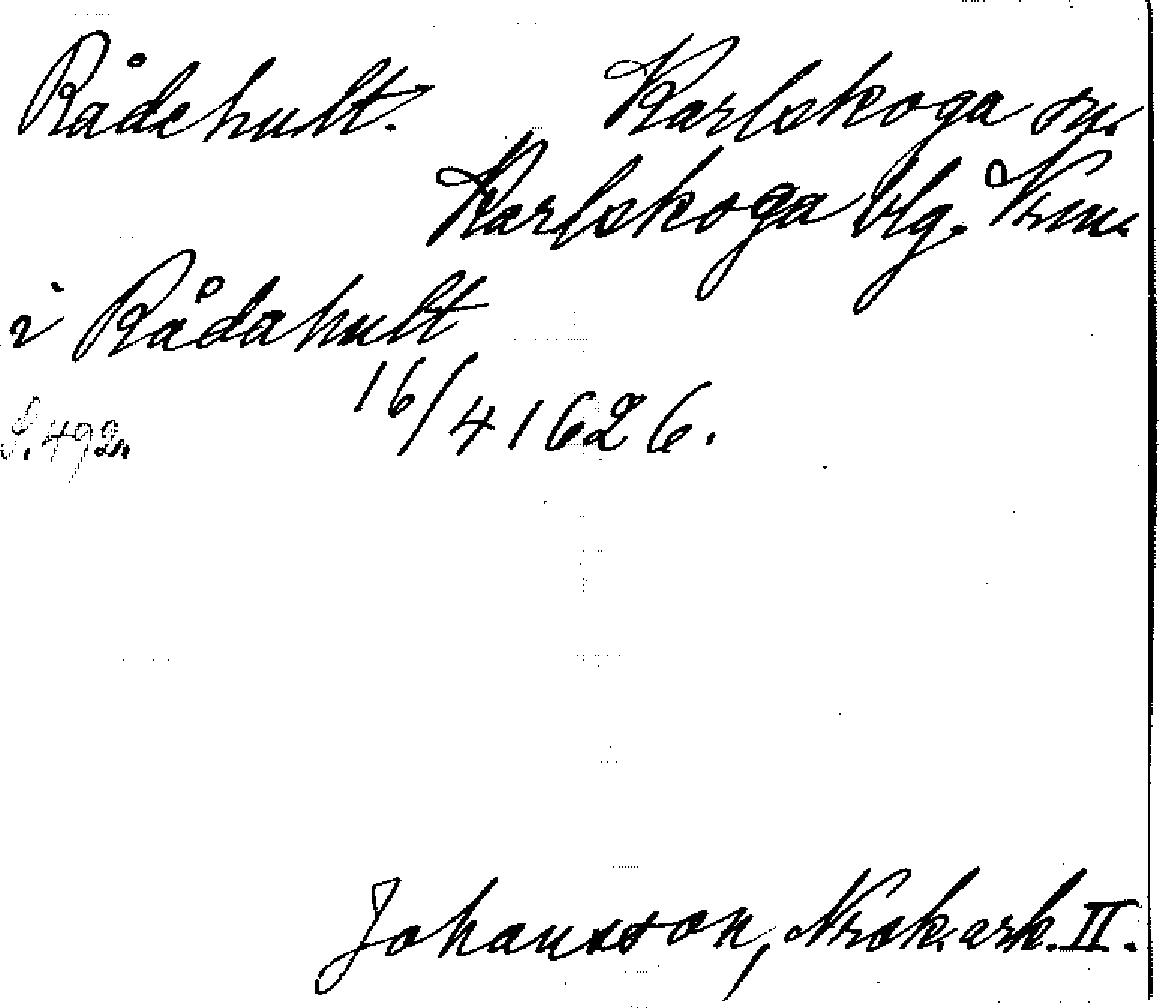 Rådehult. Karlskoga sn.
Karlskoga blg. Vrml.
i Rådahult
16/4 1626.
S. 492.
Johansson, Norask. ark. II.